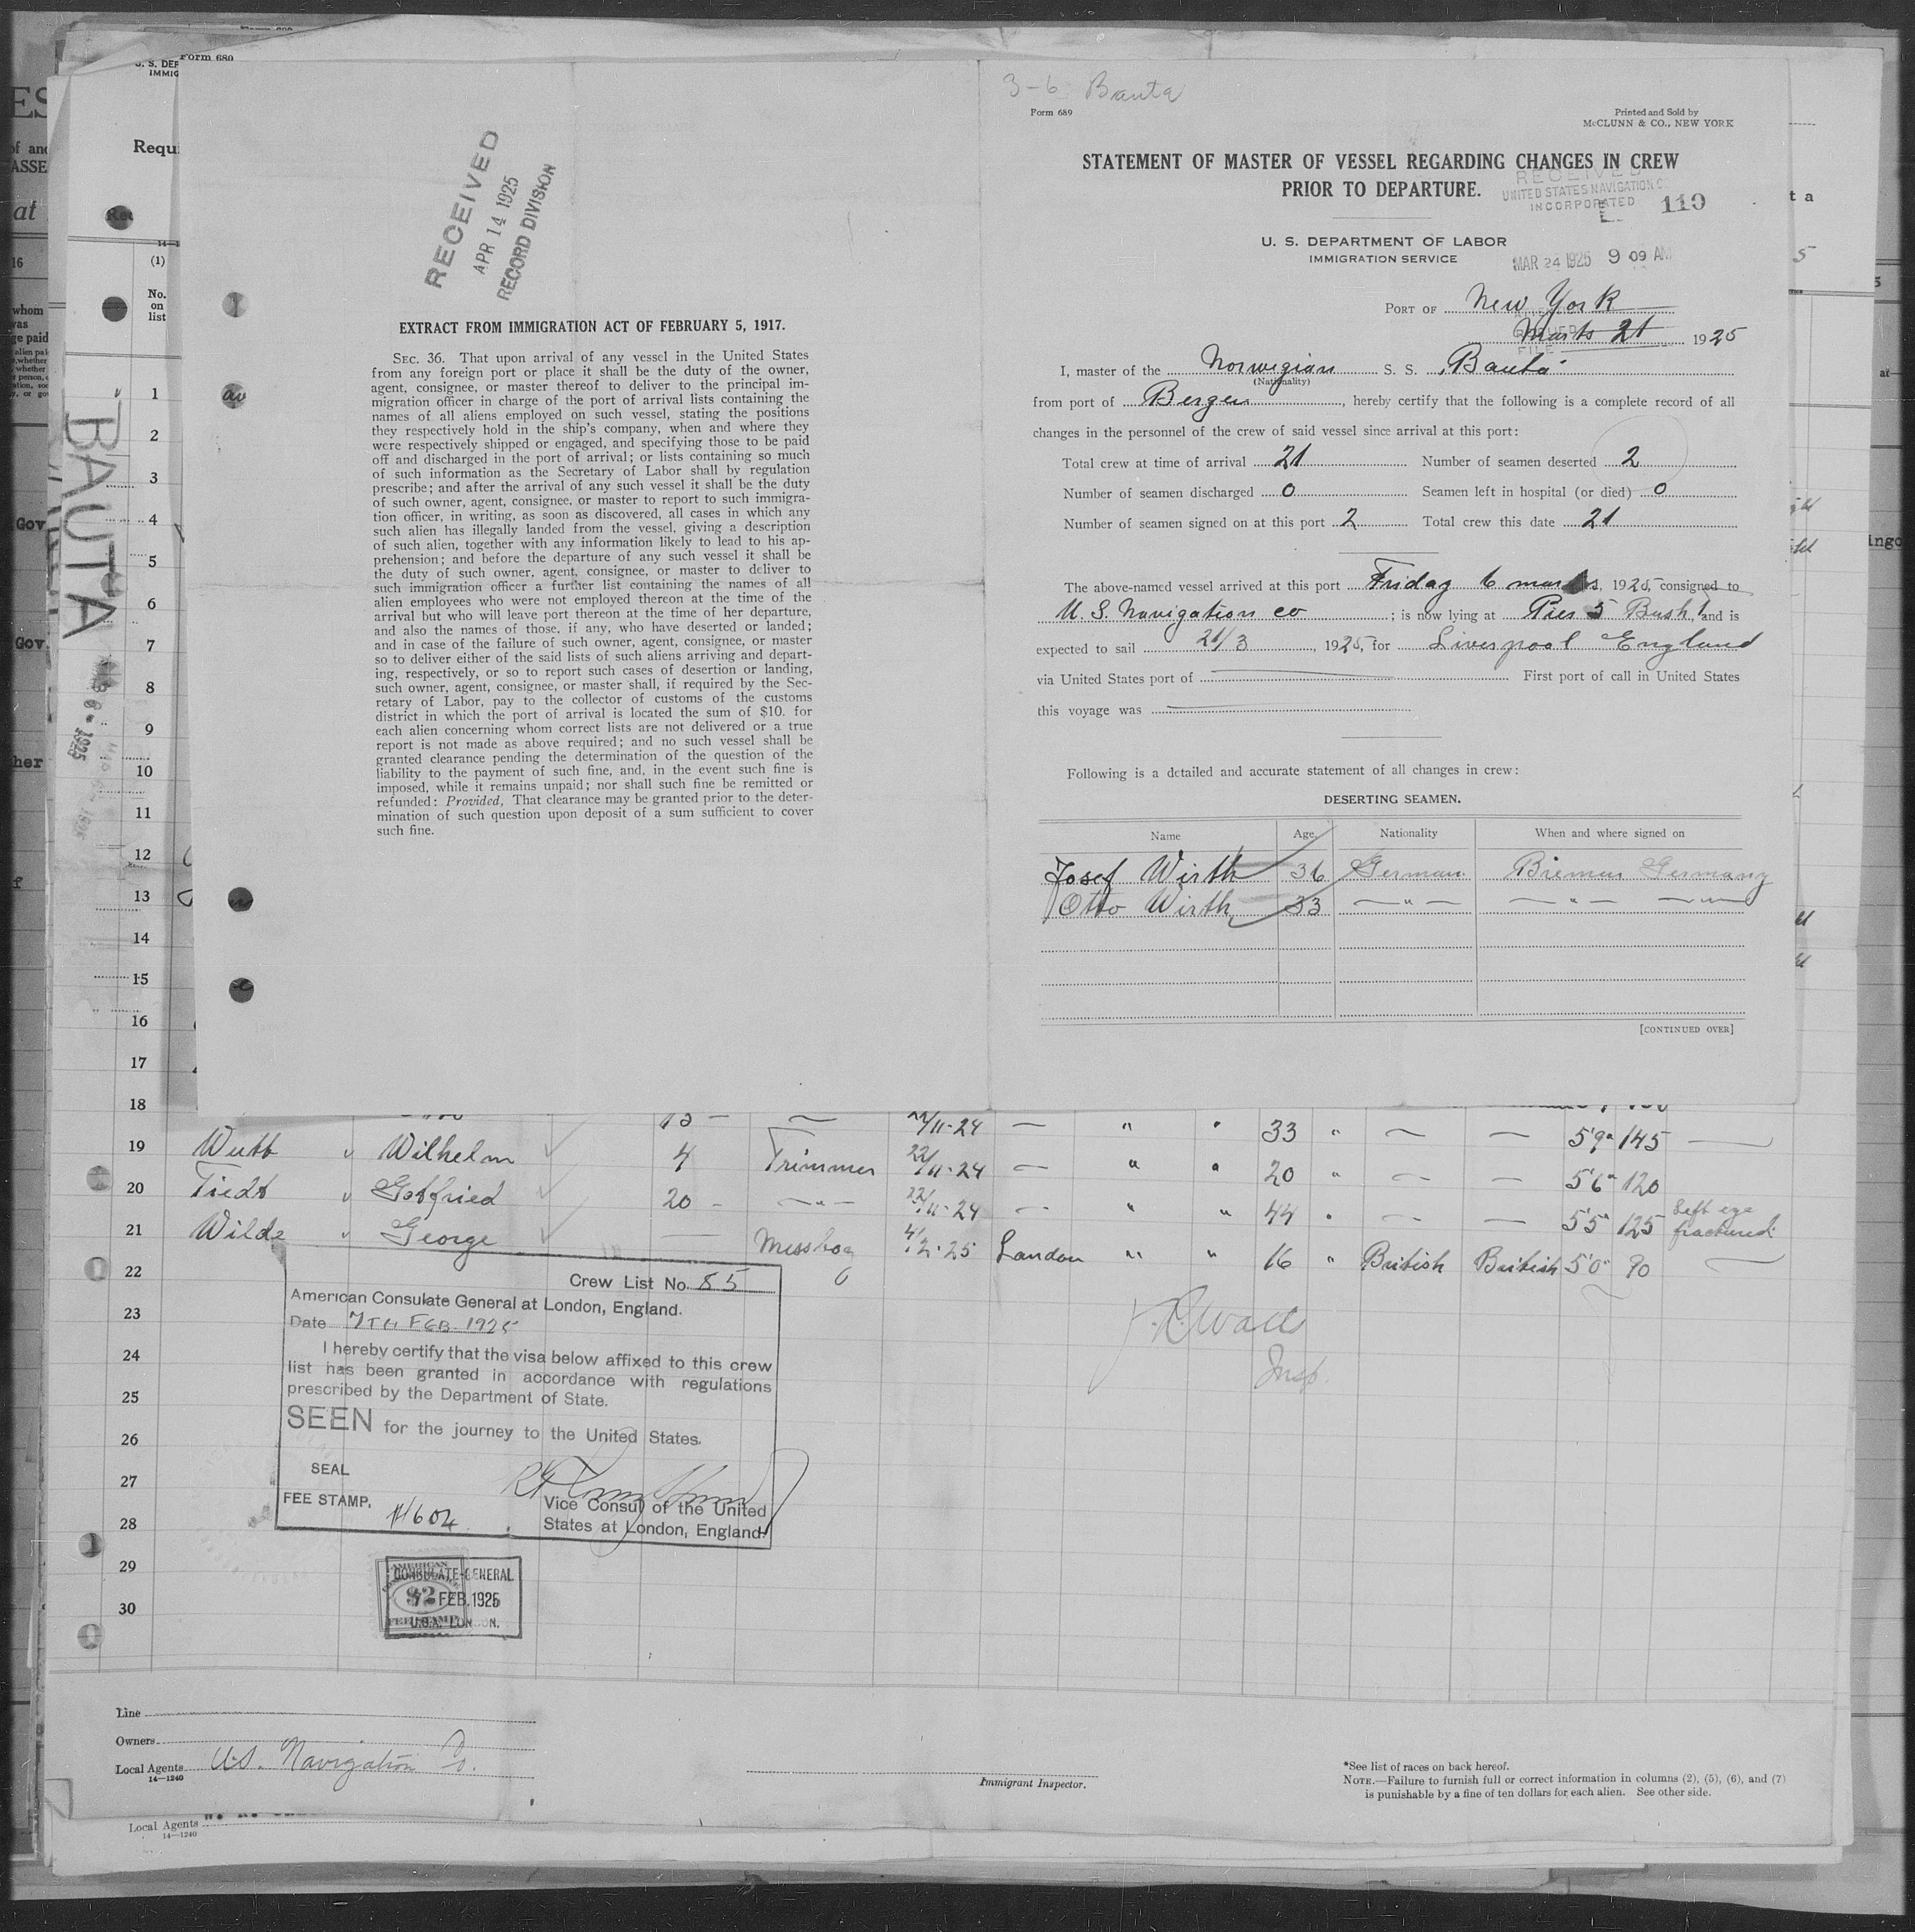 3-6 Bauta
Form 689
Printed and Sold by
McCLUNN & CO., NEW YORK
STATEMENT OF MASTER OF VESSEL REGARDING CHANGES IN CREW
PRIOR TO DEPARTURE.
RECEIVED
UNITED STATES NAVIGATION C
INCORPORATED
119
U. S. DEPARTMENT OF LABOR
IMMIGRATION SERVICE
MAR 24 1925 9 09 AM
PORT OF New York
Marts 21 1925
I, master of the Norwegian S. S. "Bauta"
(Nationality)
from port of Bergen, hereby certify that the following is a complete record of all
changes in the personnel of the crew of said vessel since arrival at this port:
Total crew at time of arrival 21 Number of seamen deserted 2
Number of seamen discharged 0 Seamen left in hospital (or died) 0
Number of seamen signed on at this port 2 Total crew this date 21
The above-named vessel arrived at this port Friday 6 marts, 1925, consigned to
U. S. Navigation co ; is now lying at Pier 5 Bush, and is
expected to sail 21/3, 1925, for Liverpool England
via United States port of First port of call in United States
this voyage was
Following is a detailed and accurate statement of all changes in crew:
DESERTING SEAMEN.
Name Age Nationality When and where signed on
Josef Wirth 36 German Bremen Germany
Otto Wirth 33 — " — — " —
[CONTINUED OVER]
RECEIVED
APR 14 1925
RECORD DIVISION
EXTRACT FROM IMMIGRATION ACT OF FEBRUARY 5, 1917.
SEC. 36. That upon arrival of any vessel in the United States
from any foreign port or place it shall be the duty of the owner,
agent, consignee, or master thereof to deliver to the principal im-
migration officer in charge of the port of arrival lists containing the
names of all aliens employed on such vessel, stating the positions
they respectively hold in the ship's company, when and where they
were respectively shipped or engaged, and specifying those to be paid
off and discharged in the port of arrival; or lists containing so much
of such information as the Secretary of Labor shall by regulation
prescribe; and after the arrival of any such vessel it shall be the duty
of such owner, agent, consignee, or master to report to such immigra-
tion officer, in writing, as soon as discovered, all cases in which any
such alien has illegally landed from the vessel, giving a description
of such alien, together with any information likely to lead to his ap-
prehension; and before the departure of any such vessel it shall be
the duty of such owner, agent, consignee, or master to deliver to
such immigration officer a further list containing the names of all
alien employees who were not employed thereon at the time of the
arrival but who will leave port thereon at the time of her departure,
and also the names of those, if any, who have deserted or landed;
and in case of the failure of such owner, agent, consignee, or master
so to deliver either of the said lists of such aliens arriving and depart-
ing, respectively, or so to report such cases of desertion or landing,
such owner, agent, consignee, or master shall, if required by the Sec-
retary of Labor, pay to the collector of customs of the customs
district in which the port of arrival is located the sum of $10. for
each alien concerning whom correct lists are not delivered or a true
report is not made as above required; and no such vessel shall be
granted clearance pending the determination of the question of the
liability to the payment of such fine, and, in the event such fine is
imposed, while it remains unpaid; nor shall such fine be remitted or
refunded: Provided, That clearance may be granted prior to the deter-
mination of such question upon deposit of a sum sufficient to cover
such fine.
Form 680
Requ
(1)
No.
on
list
BAUTA
1
2
3
4
5
6
7
8
9
10
11
12
13
14
15
16
17
18
19 Wutt " Wilhelm 4 Trimmer 22/11-24 — " " 20 " — — 5'6" 120
20 Tiedt " Gotfried 20 - — " — 22/11-24 — " " 44 " — — 5'5" 125 Left eye fractured
21 Wilde " George — Messboy 4/2-25 London " " 16 " British British 5'0" 90 —
22
23
24
25
26
27
28
29
30
Crew List No. 85
American Consulate General at London, England.
Date 7TH FEB. 1925
I hereby certify that the visa below affixed to this crew
list has been granted in accordance with regulations
prescribed by the Department of State.
SEEN for the journey to the United States.
SEAL
FEE STAMP.
Vice Consul of the United
States at London, England.
CONSULATE-GENERAL
FEB. 1925
U.S.A. LONDON.
Insp.
Line
Owners
Local Agents U.S. Navigation Co.
14—1240
Immigrant Inspector.
*See list of races on back hereof.
NOTE.—Failure to furnish full or correct information in columns (2), (5), (6), and (7)
is punishable by a fine of ten dollars for each alien. See other side.
Local Agents
14—1240